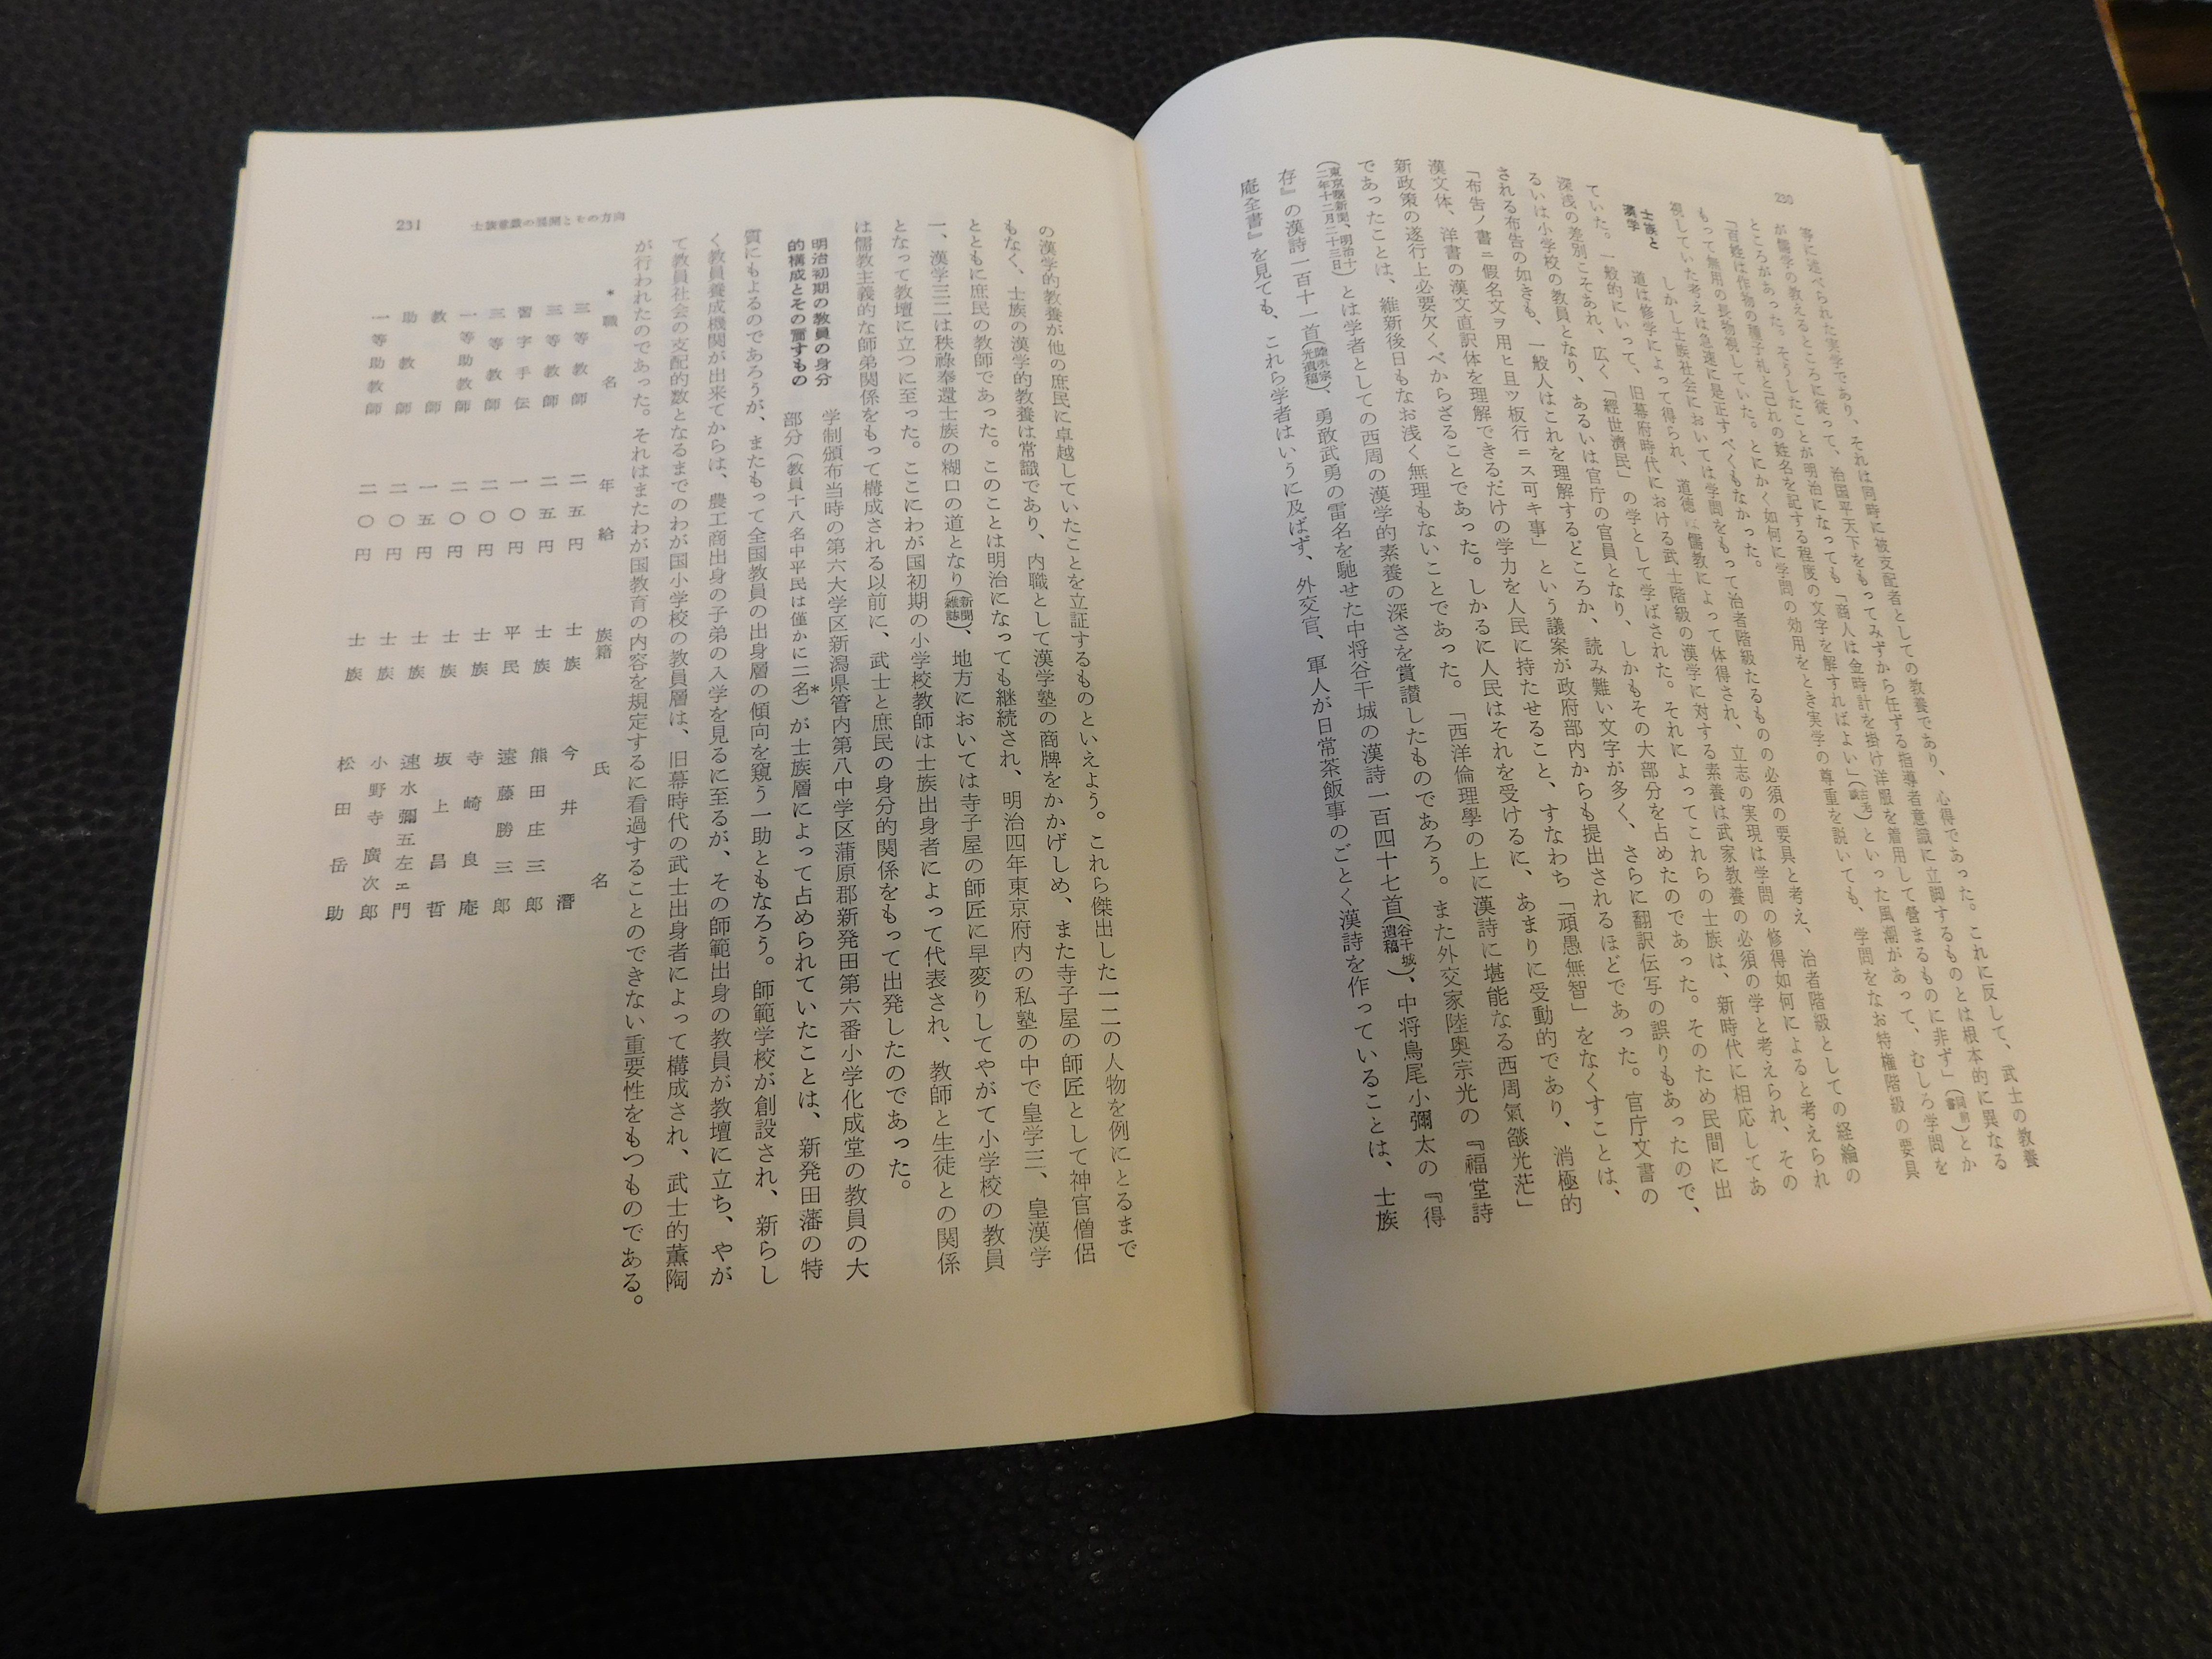 230
等に述べられた実学であり、それは同時に被支配者としての教養であり、心得であった。これに反して、武士の教養
が儒学の教えるところに従って、治国平天下をもってみずから任ずる指導者意識に立脚するものとは根本的に異なる
ところがあった。そうしたことが明治になっても「商人は金時計を掛け洋服を着用して営まるものに非ず」とか
「百姓は作物の種子札と己れの姓名を記する程度の文字を解すればよい」といった風潮があって、むしろ学問を
もって無用の長物視していた。とにかく如何に学問の効用をとき実学の尊重を説いても、学問をなお特権階級の要具
視していた考えは急速に是正すべくもなかった。
しかし士族社会においては学問をもって治者階級たるものの必須の要具と考え、治者階級としての経綸の
士族と
漢学
道は修学によって得られ、道徳は儒教によって体得され、立志の実現は学問の修得如何によると考えられ
ていた。一般的にいって、旧幕府時代における武士階級の漢学に対する素養は武家教養の必須の学と考えられ、その
深浅の差別こそあれ、広く「經世濟民」の学として学ばされた。それによってこれらの士族は、新時代に相応してあ
るいは小学校の教員となり、あるいは官庁の官員となり、しかもその大部分を占めたのであった。そのため民間に出
される布告の如きも、一般人はこれを理解するどころか、読み難い文字が多く、さらに翻訳伝写の誤りもあったので、
「布告ノ書ニ假名文ヲ用ヒ且ツ板行ニス可キ事」という議案が政府部内からも提出されるほどであった。官庁文書の
漢文体、洋書の漢文直訳体を理解できるだけの学力を人民に持たせること、すなわち「頑愚無智」をなくすことは、
新政策の遂行上必要欠くべからざることであった。しかるに人民はそれを受けるに、あまりに受動的であり、消極的
であったことは、維新後日もなお浅く無理もないことであった。「西洋倫理學の上に漢詩に堪能なる西周氣燄光茫」
(東京曙新聞、明治十二年十二月二十三日)とは学者としての西周の漢学的素養の深さを賞讃したものであろう。また外交家陸奥宗光の『福堂詩
存』の漢詩一百十一首(陸奥宗光遺稿)、勇敢武勇の雷名を馳せた中将谷干城の漢詩一百四十七首(谷干城遺稿)、中将鳥尾小彌太の『得
庵全書』を見ても、これら学者はいうに及ばず、外交官、軍人が日常茶飯事のごとく漢詩を作っていることは、士族
231
士族意識の展開とその方向
の漢学的教養が他の庶民に卓越していたことを立証するものといえよう。これら傑出した一二の人物を例にとるまで
もなく、士族の漢学的教養は常識であり、内職として漢学塾の商牌をかかげしめ、また寺子屋の師匠として神官僧侶
とともに庶民の教師であった。このことは明治になっても継続され、明治四年東京府内の私塾の中で皇学三、皇漢学
一、漢学三二は秩祿奉還士族の糊口の道となり(新聞雑誌)、地方においては寺子屋の師匠に早変りしてやがて小学校の教員
となって教壇に立つに至った。ここにわが国初期の小学校教師は士族出身者によって代表され、教師と生徒との関係
は儒教主義的な師弟関係をもって構成される以前に、武士と庶民の身分的関係をもって出発したのであった。
明治初期の教員の身分
的構成とその齎すもの
学制頒布当時の第六大学区新潟県管内第八中学区蒲原郡新発田第六番小学化成堂の教員の大
部分(教員十八名中平民は僅かに二名)*が士族層によって占められていたことは、新発田藩の特
質にもよるのであろうが、またもって全国教員の出身層の傾向を窺う一助ともなろう。師範学校が創設され、新らし
く教員養成機関が出来てからは、農工商出身の子弟の入学を見るに至るが、その師範出身の教員が教壇に立ち、やが
て教員社会の支配的数となるまでのわが国小学校の教員層は、旧幕時代の武士出身者によって構成され、武士的薫陶
が行われたのであった。それはまたわが国教育の内容を規定するに看過することのできない重要性をもつものである。
*職名 年給 族籍 氏名
三等教師 二五円 士族 今井潛
三等教師 二五円 士族 熊田庄三郎
習字手伝 一〇円 平民 遠藤勝三郎
三等教師 二〇円 士族 寺崎良庵
一等助教師 二〇円 士族 坂上昌哲
教師 一五円 士族 速水彌五左エ門
助教師 二〇円 士族 小野寺廣次郎
一等助教師 二〇円 士族 松田岳助